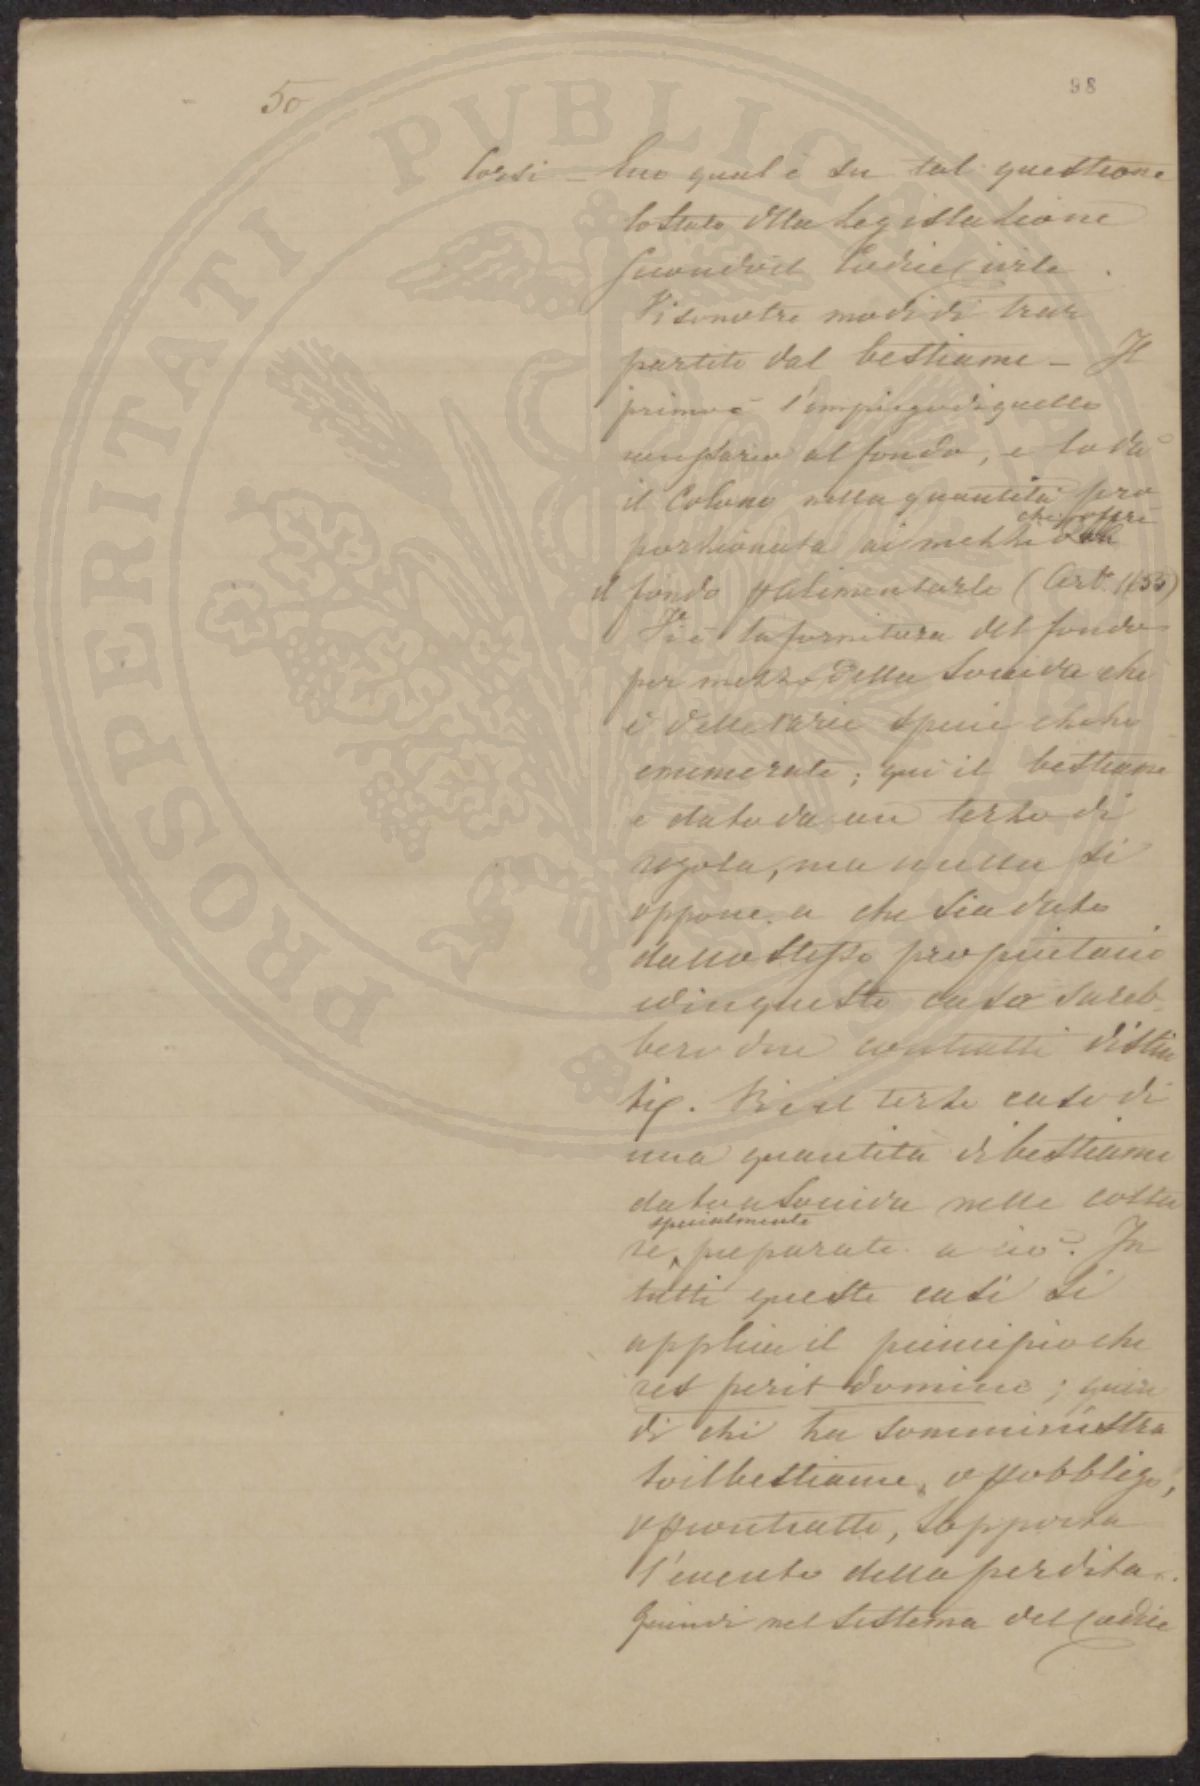 50
98
Corsi - Ecco qual è su tal questione
lo stato della legislazione
secondo il Codice Civile.
Vi sono tre modi di trar
partito dal bestiame - Il
primo è l'impiego di quello
necessario al fondo, e lo dà
il Colono nella quantità pro
porzionata ai mezzi che offre
il fondo p alimentarlo (Art. 1655)
Vi è la fornitura del fondo
per mezzo della Soccida che
è delle varie specie che ho
enumerate; qui il bestiame
è dato da un terzo di
regola, ma nulla si
oppone a che sia dato
dallo stesso proprietario
ed in questo caso sareb-
bero due contratti distin
ti. Vi è il terzo caso di
una quantità di bestiame
dato a Soccida nelle cascine
specialmente
preparate a ciò. In
tutti questi casi si
applica il principio che
res perit domino; quin
di chi ha somministra
to il bestiame, o p obbligo,
o p contratto, sopporta
l'evento della perdita.
Quindi nel sistema del Codice
PROSPERITATI PUBLICAE